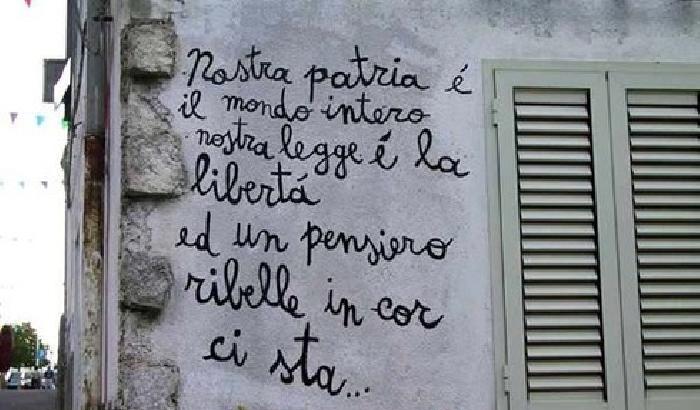 Nostra patria é
il mondo intero
nostra legge é la
libertá
ed un pensiero
ribelle in cor
ci sta...